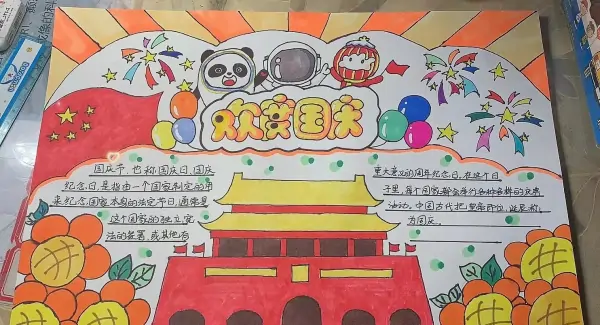 欢度国庆
国庆节，也称国庆日、国庆
纪念日，是指由一个国家制定的用
来纪念国家本身的法定节日，通常是
这个国家的独立、宪
法的签署、或其他有
重大意义的周年纪念日，在这个日
子里，各个国家都会举行各种各样的庆典
活动，中国古代把皇帝即位、诞辰称
为国庆。